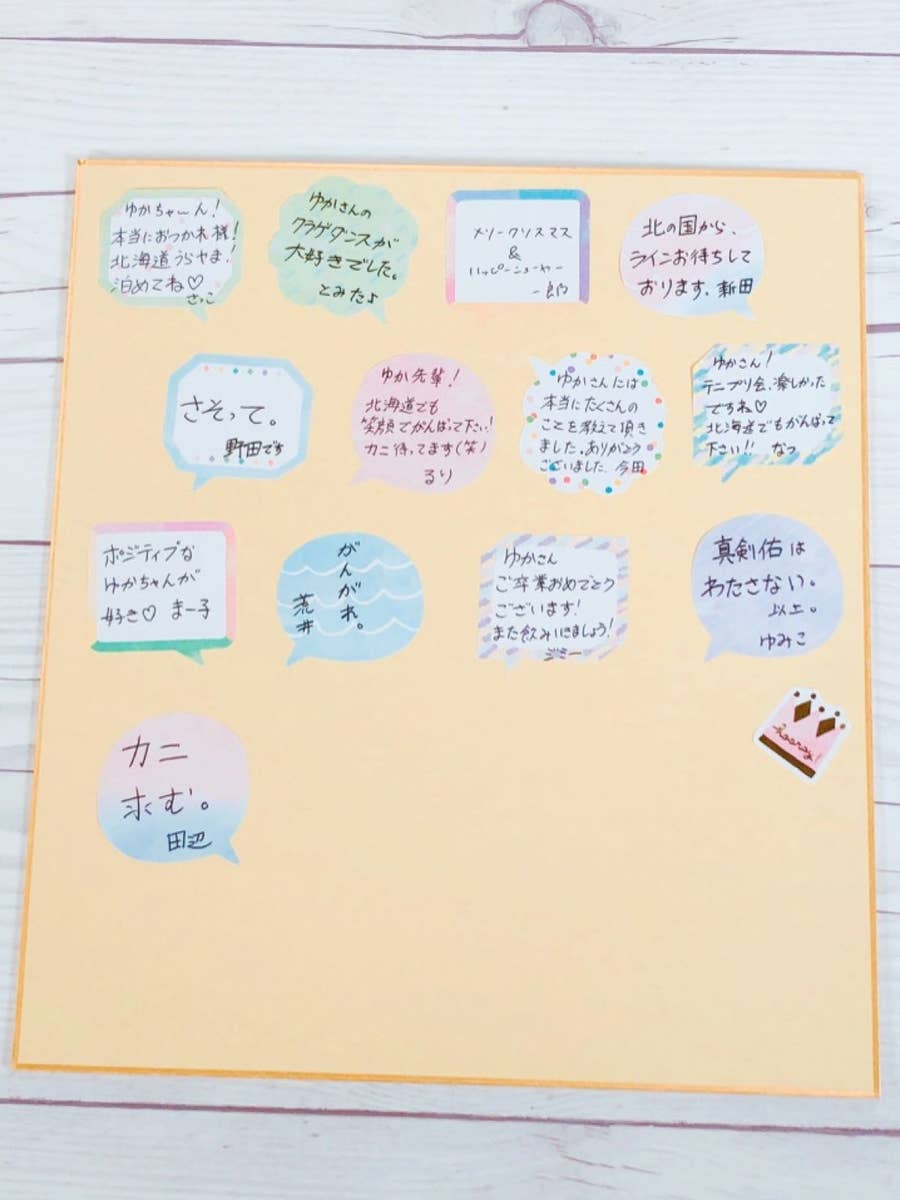 ゆかちゃ〜ん!
本当におつかれ様!
北海道うらやま!
泊めてね♡
さっこ
ゆかさんの
クラゲダンスが
大好きでした。
とみたょ
メリークリスマス
&
ハッピーニューヤー
一郎
北の国から、
ラインお待ちして
おります。新田
さそって。
野田です
ゆか先輩!
北海道でも
笑顔でがんばって下さい!
カニ待ってます(笑)
るり
ゆかさんには
本当にたくさんの
ことを教えて頂き
ました。ありがとう
ございました。今田
ゆかさん!
テニプリ会、楽しかった
ですね♡
北海道でもがんばって
下さい!! なつ
ポジティブな
ゆかちゃんが
好き♡ まー子
がんがれ。
荒井
ゆかさん
ご卒業おめでとう
ございます!
また飲みいきましょう!
ジミー
真剣佑は
わたさない。
以上。
ゆみこ
hooray!
カニ
求む。
田辺